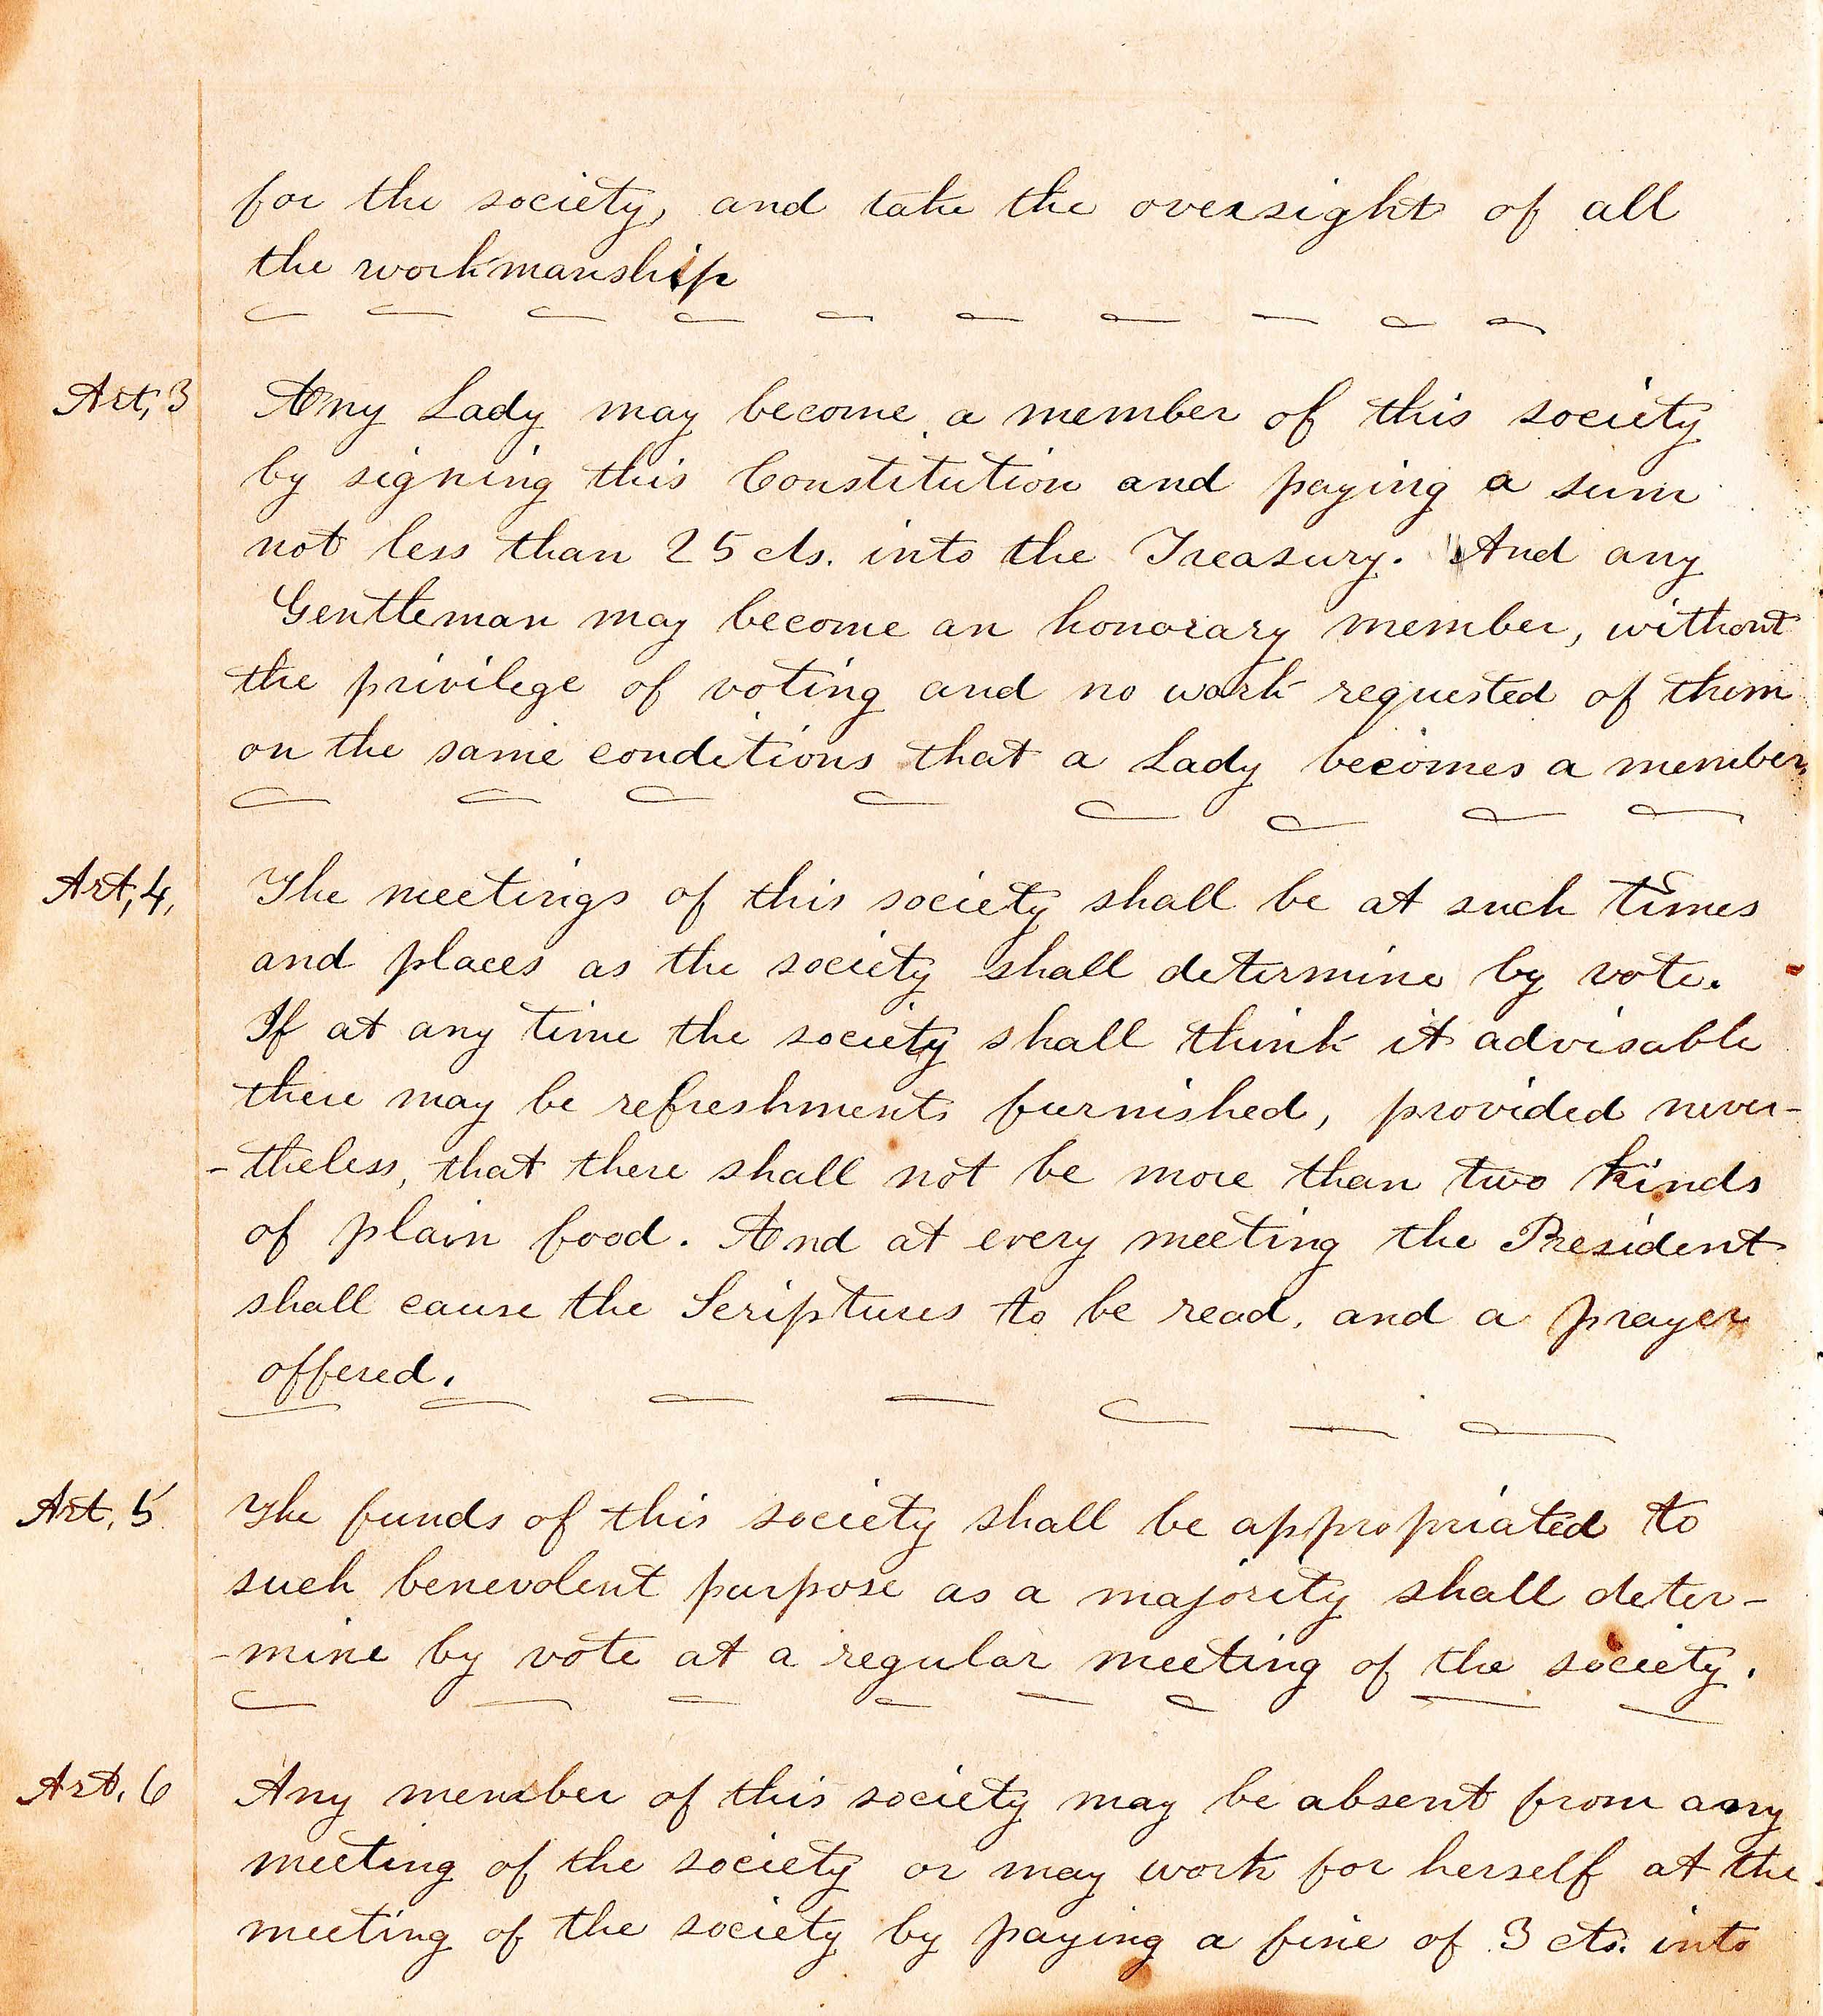 for the society, and take the oversight of all
the workmanship
Art, 3 Any Lady may become a member of this society
by signing this Constitution and paying a sum
not less than 25 cts. into the Treasury. And any
Gentleman may become an honorary member, without
the privilege of voting and no work requested of them
on the same conditions that a Lady becomes a member,
Art, 4, The meetings of this society shall be at such times
and places as the society shall determine by vote.
If at any time the society shall think it advisable
there may be refreshments furnished, provided never-
-theless, that there shall not be more than two kinds
of plain food. And at every meeting the President
shall cause the Scriptures to be read, and a prayer
offered.
Art. 5 The funds of this society shall be appropriated to
such benevolent purpose as a majority shall deter-
-mine by vote at a regular meeting of the society.
Art. 6 Any member of this society may be absent from any
meeting of the society or may work for herself at the
meeting of the society by paying a fine of 3 cts. into